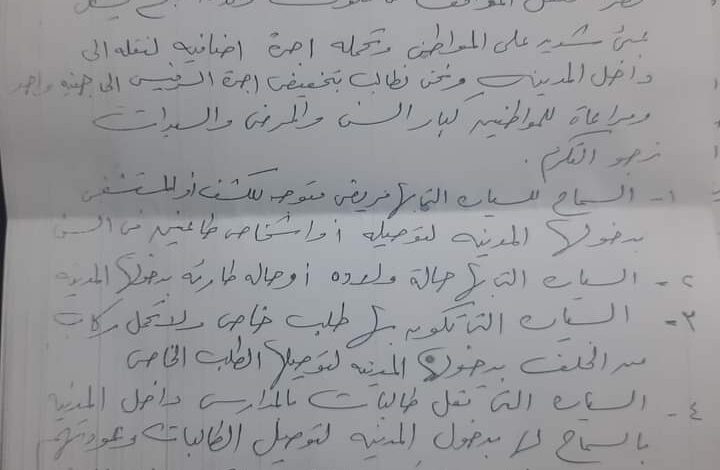 عبئ شديد على المواطن وتحمله اجرة اضافيه لنقله الى
داخل المدينه ونحن نطالب بتخفيض اجرة السرفيس الى جنيه واحد
ومراعاة للمواطنين كبار السن والمرضى والسيدات
نرجو التكرم .
١- السماح للسياره التى بها مريض متوجه للكشف أو للمستشفى
بدخولها المدينه لتوصيله أو اشخاص طاعنين فى السن
٢- السياره التى بها حالة ولاده أو حاله طارئه بدخولها المدينه
٣- السياره التى تكون بها طلب خاص ولا تحمل ركاب
من الخلف بدخولها المدينه لتوصيلها الطلب الخاص
٤- السياره التى تنقل طالبات بالمدارس داخل المدينه
بالسماح لها بدخول المدينه لتوصيل الطالبات وعودتهم